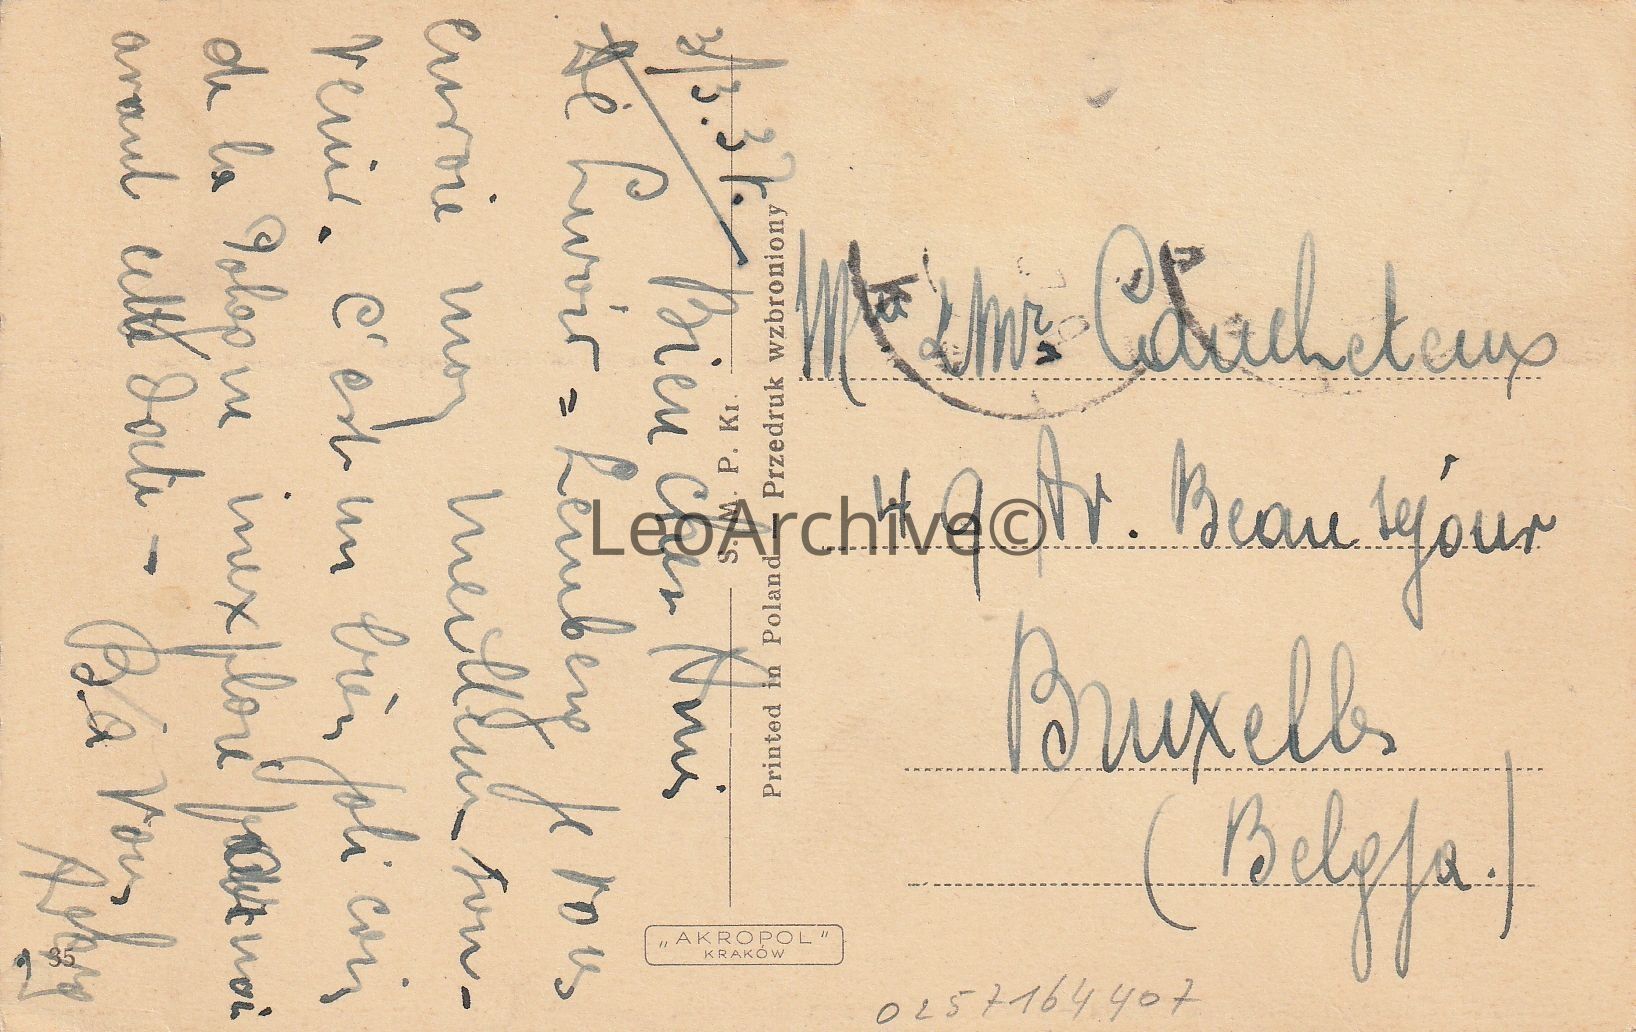 31/3.37.
Bien Chers Amis
De Lwów = Lemberg je vous
envoie mon meilleur sou-
venir. C'est un très joli coin
de la Pologne inexploré par moi
avant cette date -
B. à Vous
M Mr Caucheteux
49 Av. Beau séjour
Bruxelles
(Belgja.)
S. M. P. Kr.
Printed in Poland — Przedruk wzbroniony
„AKROPOL"
KRAKÓW
35
0257164407
LeoArchive©